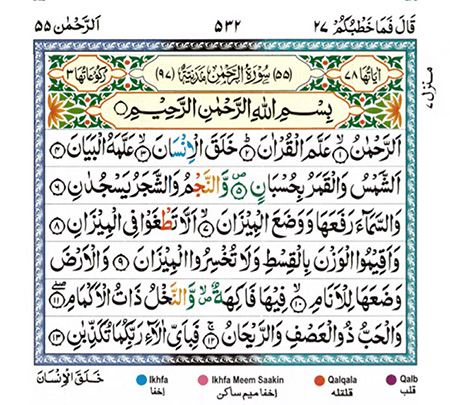 قَالَ فَمَا خَطْبُكُمْ ٢٧ ٥٣٢ اَلرَّحْمٰنُ ٥٥
منزل ٧
اٰيَاتُهَا ٧٨ (٥٥) سُوْرَةُ الرَّحْمٰنِ مَدَنِيَّةٌ (٩٧) رُكُوْعَاتُهَا ٣
بِسْمِ اللّٰهِ الرَّحْمٰنِ الرَّحِيْمِ
اَلرَّحْمٰنُ ۙ﴿١﴾ عَلَّمَ الْقُرْاٰنَ ؕ﴿٢﴾ خَلَقَ الْاِنْسَانَ ۙ﴿٣﴾ عَلَّمَهُ الْبَيَانَ ﴿٤﴾
اَلشَّمْسُ وَالْقَمَرُ بِحُسْبَانٍ ۪﴿٥﴾ وَّالنَّجْمُ وَالشَّجَرُ يَسْجُدٰنِ ﴿٦﴾
وَالسَّمَآءَ رَفَعَهَا وَوَضَعَ الْمِيْزَانَ ۙ﴿٧﴾ اَلَّا تَطْغَوْا فِى الْمِيْزَانِ ﴿٨﴾
وَاَقِيْمُوا الْوَزْنَ بِالْقِسْطِ وَلَا تُخْسِرُوا الْمِيْزَانَ ﴿٩﴾ وَالْاَرْضَ
وَضَعَهَا لِلْاَنَامِ ۙ﴿١٠﴾ فِيْهَا فَاكِهَةٌ ۪ۙ وَّالنَّخْلُ ذَاتُ الْاَكْمَامِ ۖ﴿١١﴾
وَالْحَبُّ ذُو الْعَصْفِ وَالرَّيْحَانُ ۚ﴿١٢﴾ فَبِاَىِّ اٰلَآءِ رَبِّكُمَا تُكَذِّبٰنِ ﴿١٣﴾
خَلَقَ الْاِنْسَانَ Ikhfa Ikhfa Meem Saakin Qalqala Qalb
اخفا اخفا میم ساکن قلقله قلب